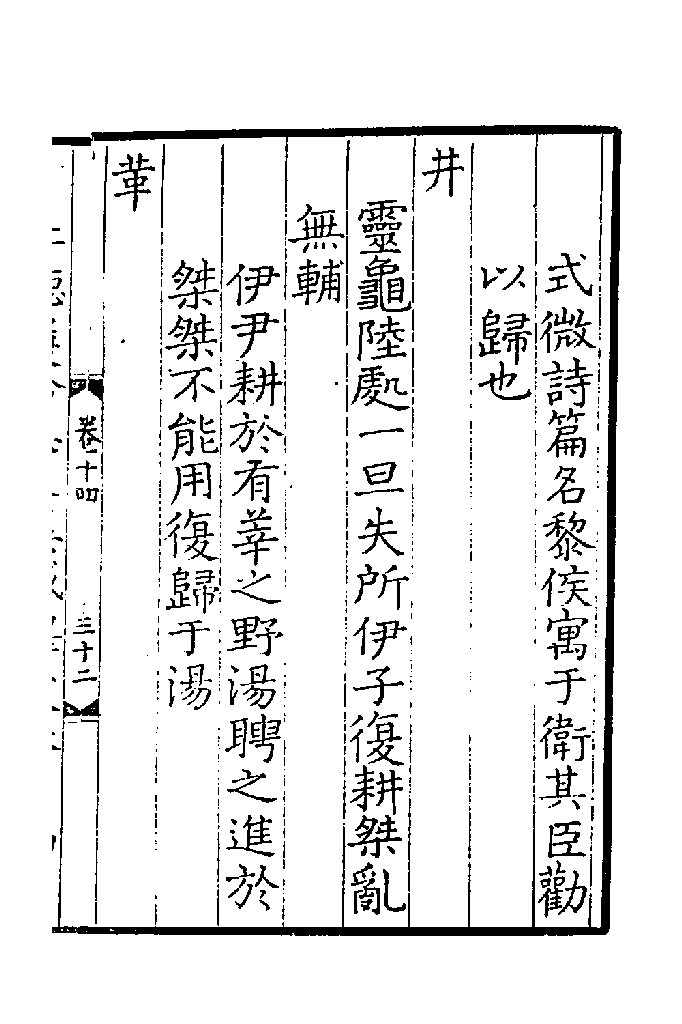 式微詩篇名黎侯寓于衛其臣勸
以歸也
井
靈龜陸處一旦失所伊子復耕桀亂
無輔
伊尹耕於有莘之野湯聘之進於
桀桀不能用復歸于湯
革
卷十四
三十二